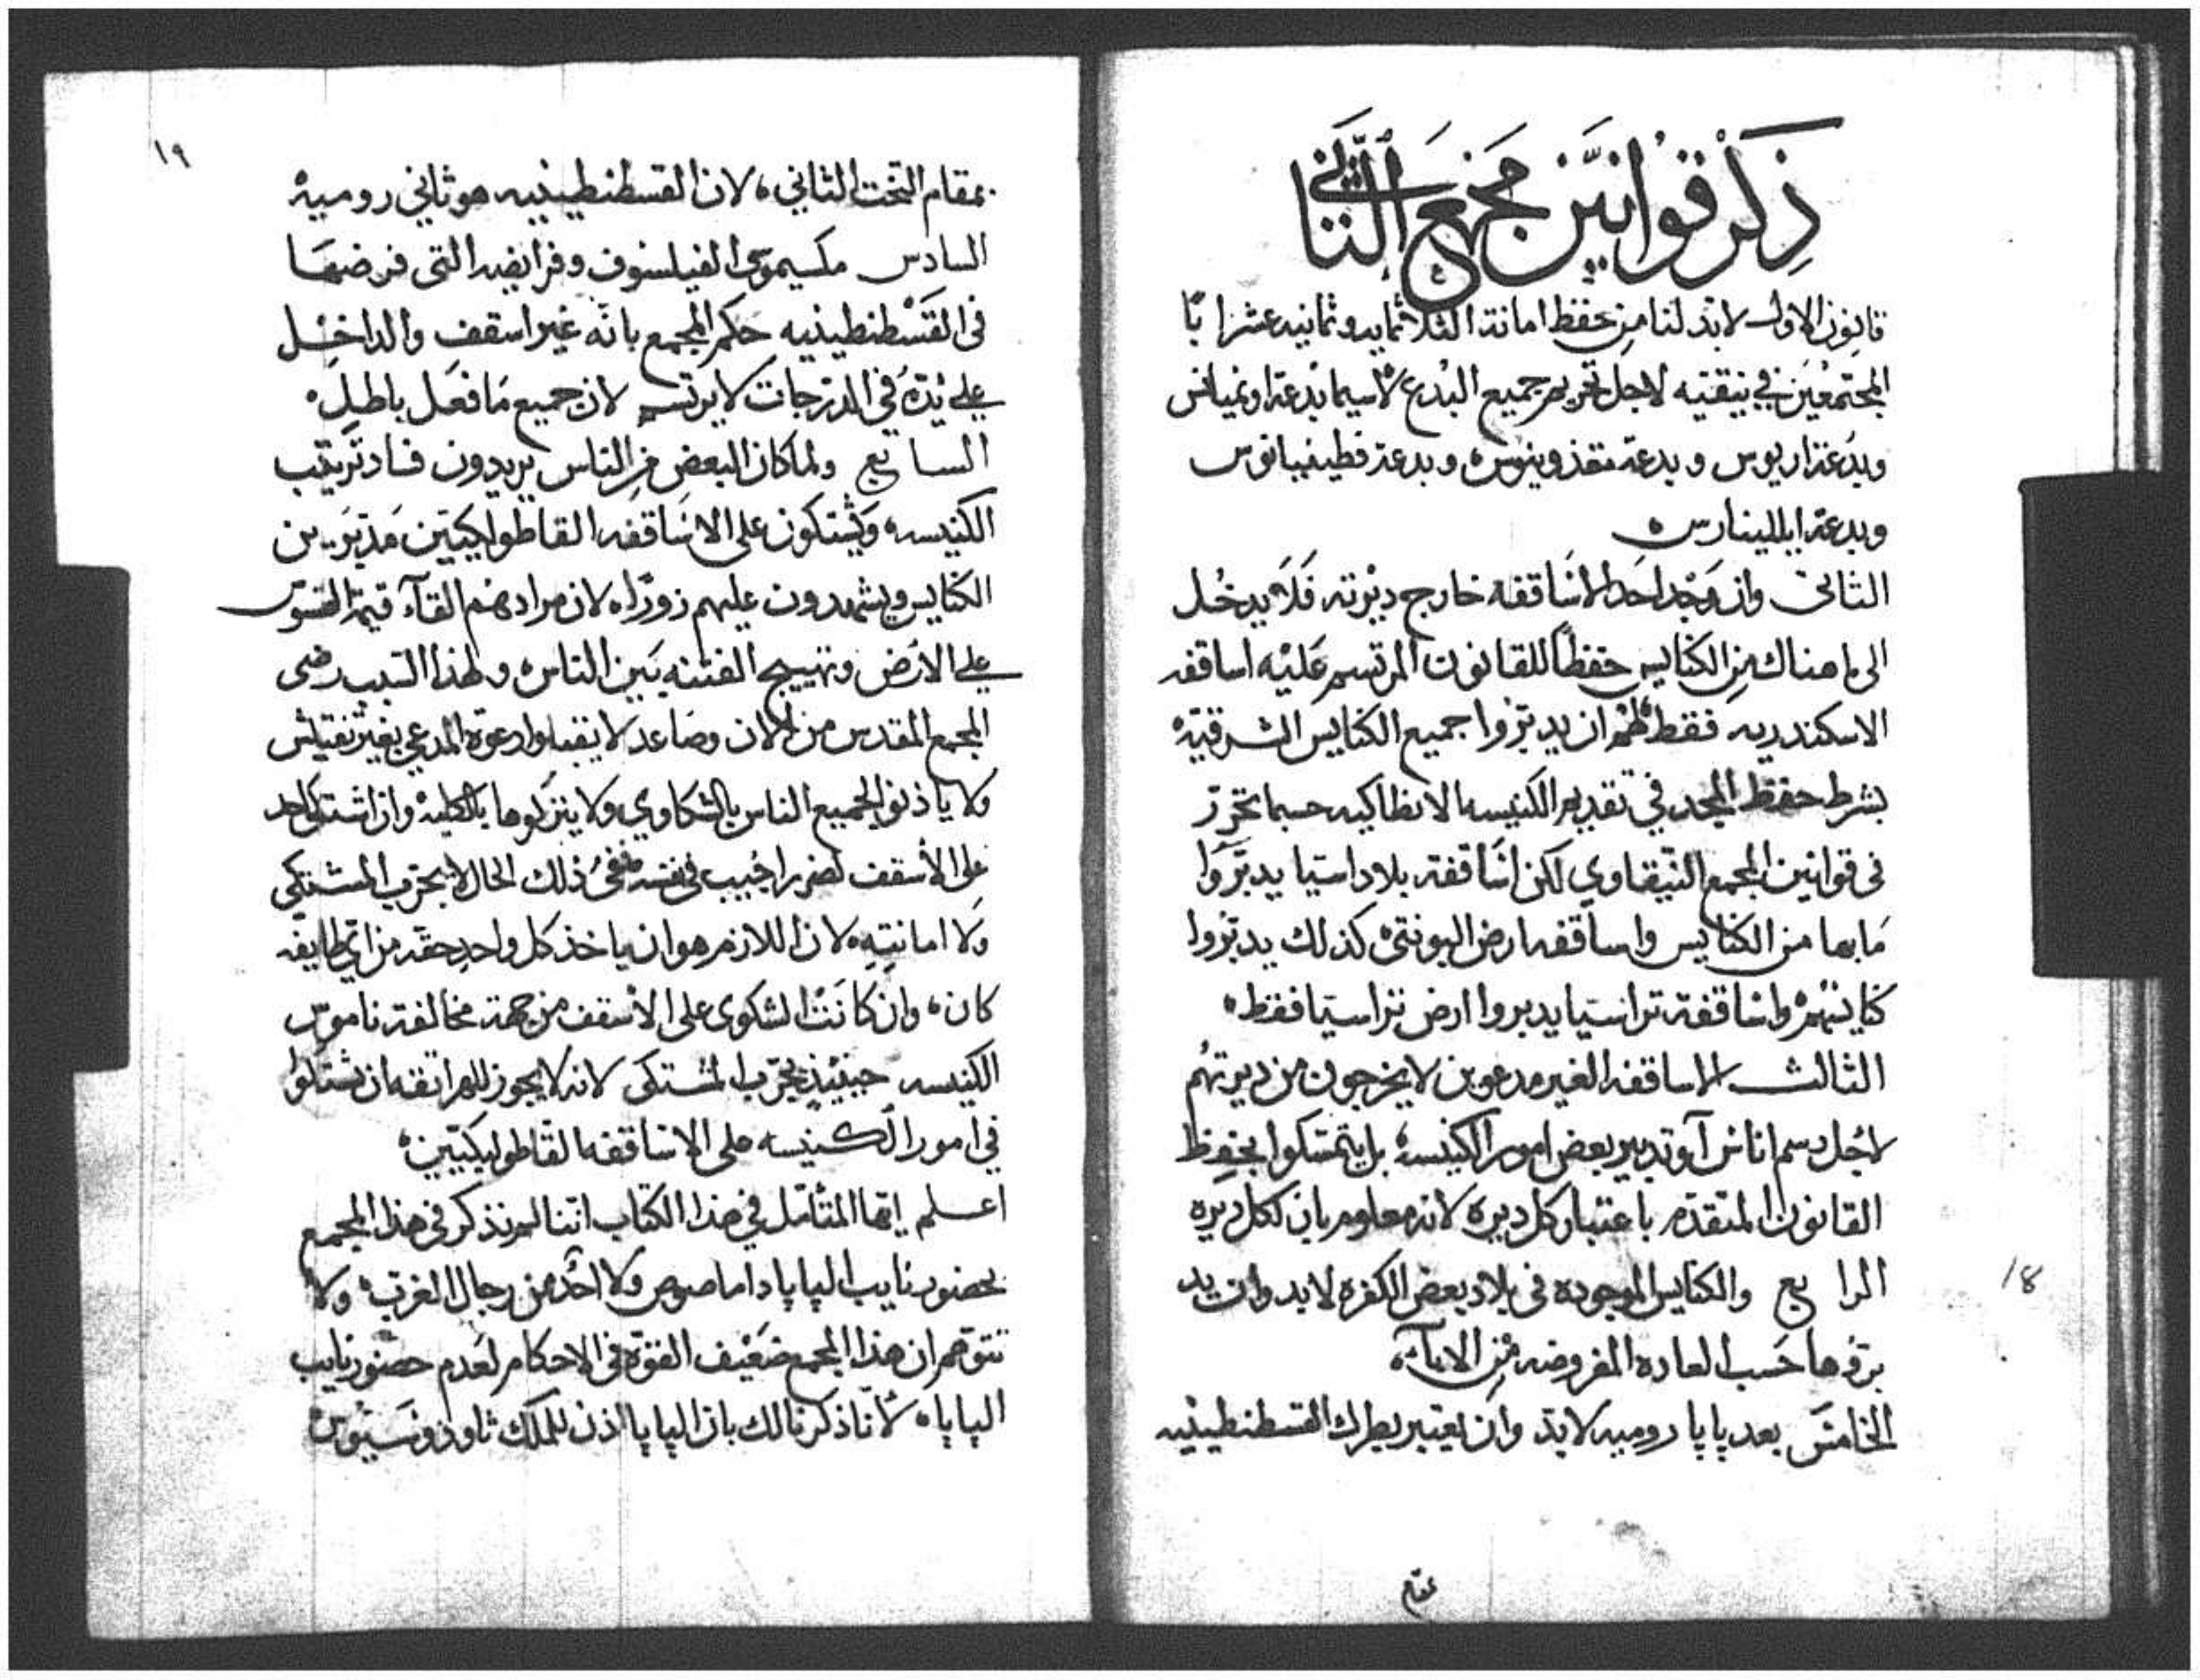 ذكر قوانين مجمع الثاني
قانون الاول لابد لنا من حفظ امانة الثلاثمايه وثمانيه عشر ابًا
المجتمعين في نيقيه لاجل تحريم جميع البدع لاسيما بدعة اونميانس
وبدعة اريوس وبدعة مقذونيوس وبدعة فطينيانوس
وبدعة ابللينارس
الثاني وان وجد احد الاساقفه خارج ديرته فلا يدخل
الى ما هناك من الكنايس حفظًا للقانون المرتسم عليه اساقفه
الاسكندريه فقط لهم ان يدبروا جميع الكنايس الشرقيّه
بشرط حفظ المجد في تقديم الكنيسه الانطاكيه حسبما تحرر
في قوانين المجمع النيقاوي لكن اساقفة بلاد اسيا يدبّروا
ما بها من الكنايس واساقفه ارض البونتي كذلك يدبّروا
كنايسهم واساقفة تراسيا يدبروا ارض تراسيا فقط
الثالث الاساقفه الغير مدعوين لا يخرجون من ديرتهم
لاجل رسم اناس او تدبير بعض امور الكنيسه بل يتمسكوا بحفظ
القانون المتقدم باعتبار كل ديره لانه معلوم بان لكل ديره
الرابع والكنايس الموجوده في بلاد بعض الكفره لابد وان يد
بروها حسب العاده المفروضه من الابآء
الخامس بعد پاپا روميه لابد وان يعتبر بطرك القسطنطينيه
18
١٩
بمقام التخت الثاني لان القسطنطينيه هو ثاني روميه
السادس مكسيموس الفيلسوف وفرايضه التي فرضها
في القسطنطينيه حكم المجمع بانه غير اسقف والداخل
على يده في الدرجات لا يرتسم لان جميع ما فعل باطل
السابع ولما كان البعض من الناس يريدون فساد ترتيب
الكنيسه ويشتكون على الاساقفه القاطوليكيين مدبرين
الكنايس ويشهدون عليهم زورًا لان مرادهم القآء قيمة القسوس
على الارض وتهييج الفتنه بين الناس ولهذا السبب رضى
المجمع المقدس من الان وصاعد لا يقبلوا دعوة المدعي بغير تفتيش
ولا ياذنوا لجميع الناس بالشكاوي ولا يتركوها بالكليه وان اشتكى احد
على الاسقف لضرر اجيب في نفسه ففي ذلك الحال لا يجرب المشتكي
ولا امانته لان اللازم هو ان ياخذ كل واحد حقه من اي طايفه
كان وان كانت الشكوى على الاسقف من جهة مخالفة ناموس
الكنيسه حينيذ يجرب المشتكى لانه لا يجوز للهراتقه ان يشتكوا
في امور الكنيسه على الاساقفه القاطوليكيين
اعلم ايها المتامل في هذا الكتاب اننا لم نذكر في هذا المجمع
بحضور نايب الپاپا داماصوص ولا احد من رجال الغرب ولا
تتوهم ان هذا المجمع ضعيف القوة في الاحكام لعدم حضور نايب
الپاپا لانا ذكرنا لك بان الپاپا اذن للملك ثاوذوسيوس